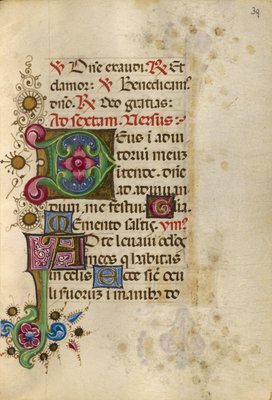 39
℣ Dñe exaudi: ℟ Et
clamor: ℣ Benedicam
dño. ℟ Deo gratias:
Ad sextam. Versus:
Deus i adiu
toriuʒ meuʒ
itende. dñe
ad adiuuan
dum, me festin. Glia.
Memento salutis. ymn
Ad te leuaui oclos
meos q habitas
in celis Ecce sic ocu
li suorum i manibꝰ do